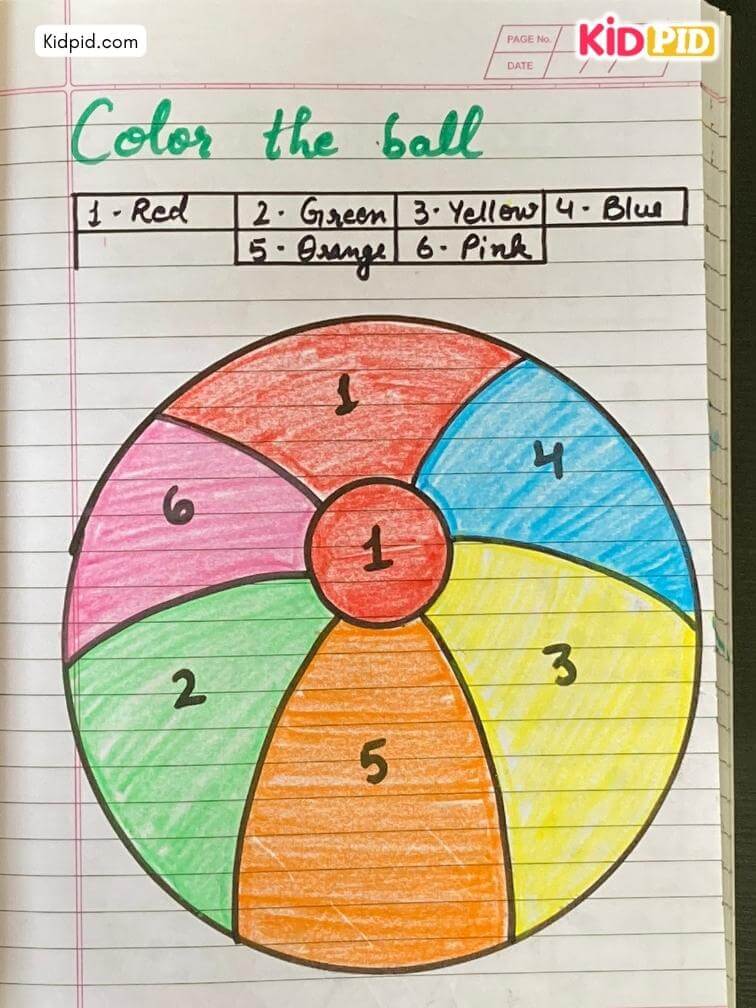 Kidpid.com
KiDPID
PAGE No.
DATE
Color the ball
1 - Red 2 - Green 3 - Yellow 4 - Blue
5 - Orange 6 - Pink
1
4
6
1
3
2
5